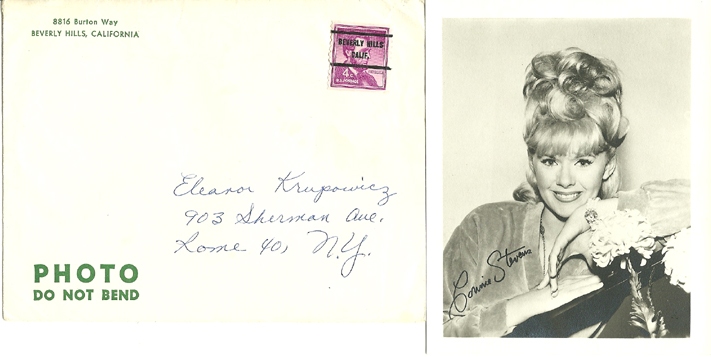 8816 Burton Way
BEVERLY HILLS, CALIFORNIA
BEVERLY HILLS
CALIF.
4¢
Eleanor Krupowicz
903 Sherman Ave.
Rome 40, N.Y.
PHOTO
DO NOT BEND
Connie Stevens